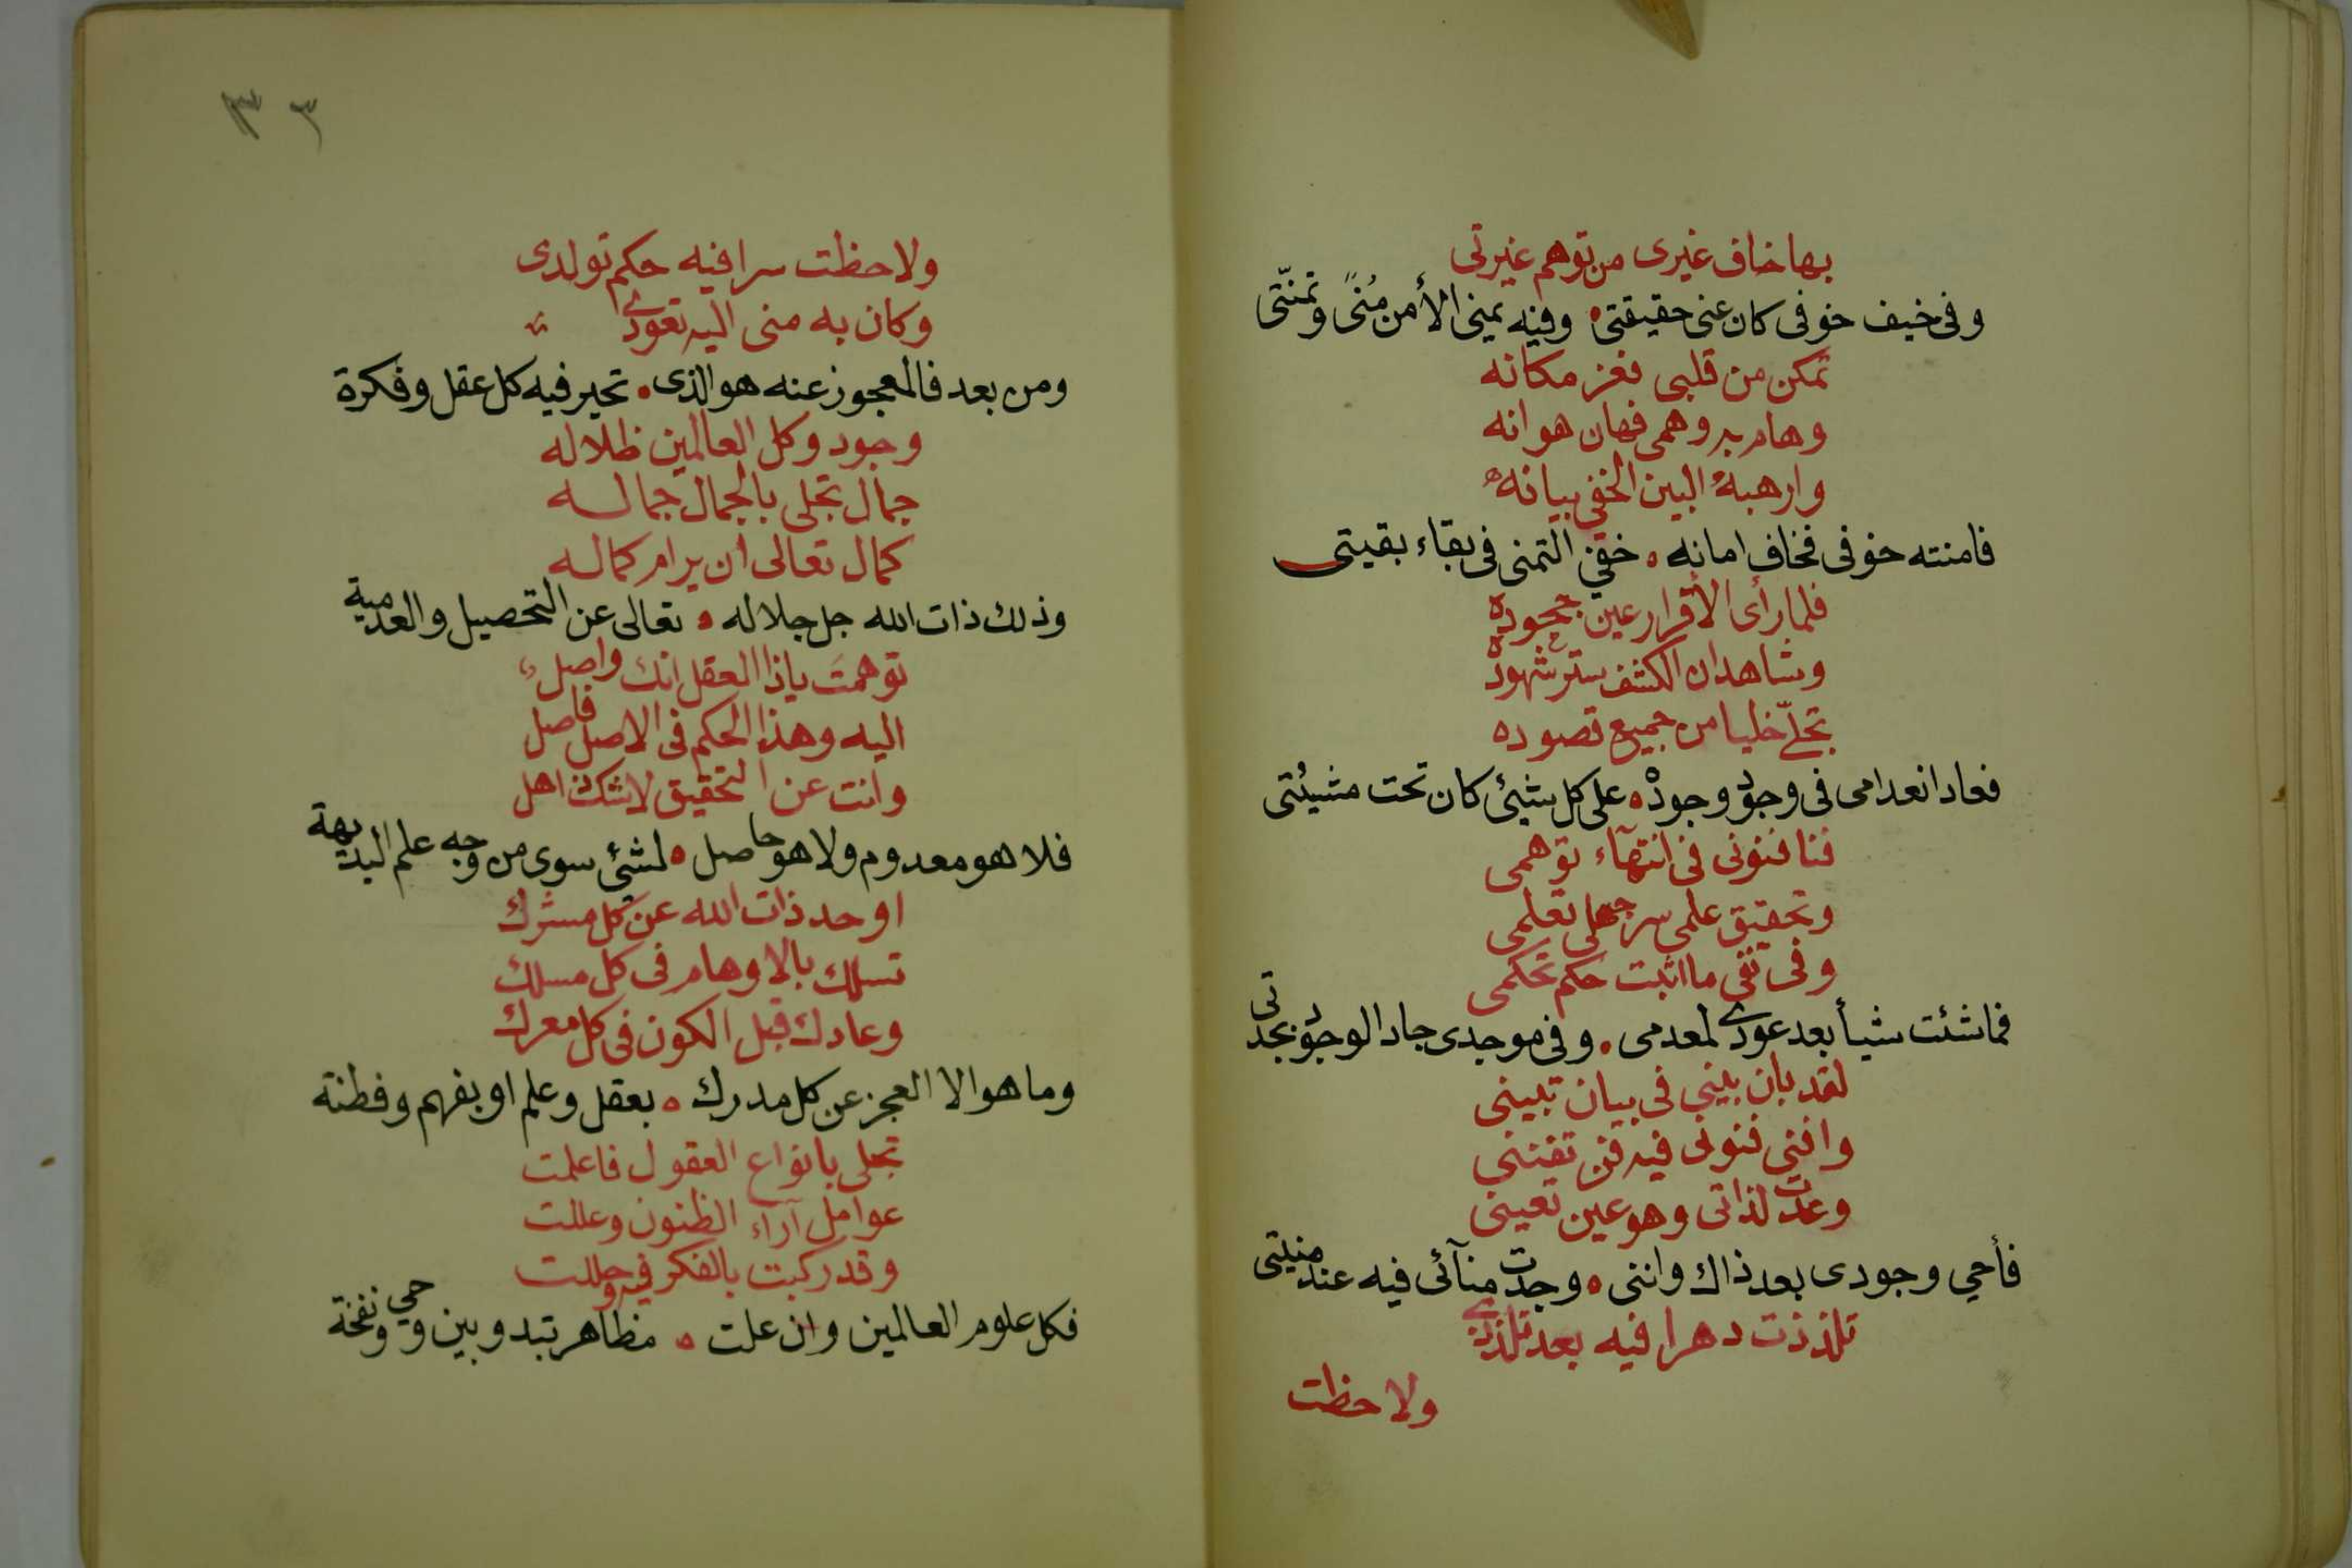 بها خاف غيرى من توهم غيرتى
وفى خيف خوفى كان عنى حقيقتى ه وفيه يمينى الأمن مُنىً وتمنّتى
تمكن من قلبى فعز مكانه
وهام به وهمى فهان هوانه
وارهبهٔ البين الخفى بيانه
فامنته خوفى فخاف امانه ه خفي التمنى فى بقاء بقيتى
فلما رأى الأقرار عين جحوده
وشاهد ان الكشف ستر شهوده
تجلّى خليا من جميع قصوده
فعاد انعدامى فى وجود وجوده ه على كل شيئ كان تحت مشيئتى
فنا فنونى فى انتهآء توهمى
وتحقيق علمى سر جهلى تعلمى
وفى نفى ما اثبت حكم تحكمى
فماشئت شيأ بعد عودى لمعدمى . وفى موجدى جاد الوجود بجدتى
لقد بان بينى فى بيان تبينى
وافنى فنونى فيه فن تفننى
وعدت لذاتى وهو عين تعينى
فأحي وجودى بعد ذاك واننى ه وجدت منآئى فيه عند منيتى
تلذذت دهرا فيه بعد تلذذى
ولاحظت
٣٣
ولاحظت سرا فيه حكم تولدى
وكان به منى اليه تعودى
ومن بعد فالمعجوز عنه هو الذى . تحير فيه كل عقل وفكرة
وجود وكل العالمين ظلاله
جمال تجلى بالجمال جماله
كمال تعالى ان يرام كماله
وذلك ذات الله جل جلاله ه تعالى عن التحصيل والعدمية
توهمتَ ياذا العقل انك واصل
اليه وهذا الحكم فى الاصل فاصل
وانت عن التحقيق لاشك ذاهل
فلا هو معدوم ولا هو حاصل ه لشئ سوى من وجه علم البديهة
او حد ذات الله عن كل مشرك
تسلك بالاوهام فى كل مسلك
وعادك قبل الكون فى كل معرك
وما هو الا العجز عن كل مدرك ه بعقل وعلم او بفهم وفطنة
تجلى بانواع العقول فاعلمت
عوامل آراء الظنون وعللت
وقد ركبت بالفكر فيه وحللت
فكل علوم العالمين وان علت ه مظاهر تبدو بين وحي ونفخة